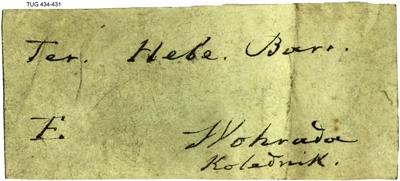 TUG 434-431
Ter. Hebe. Barr.
F. Wohrada
Kolednik.